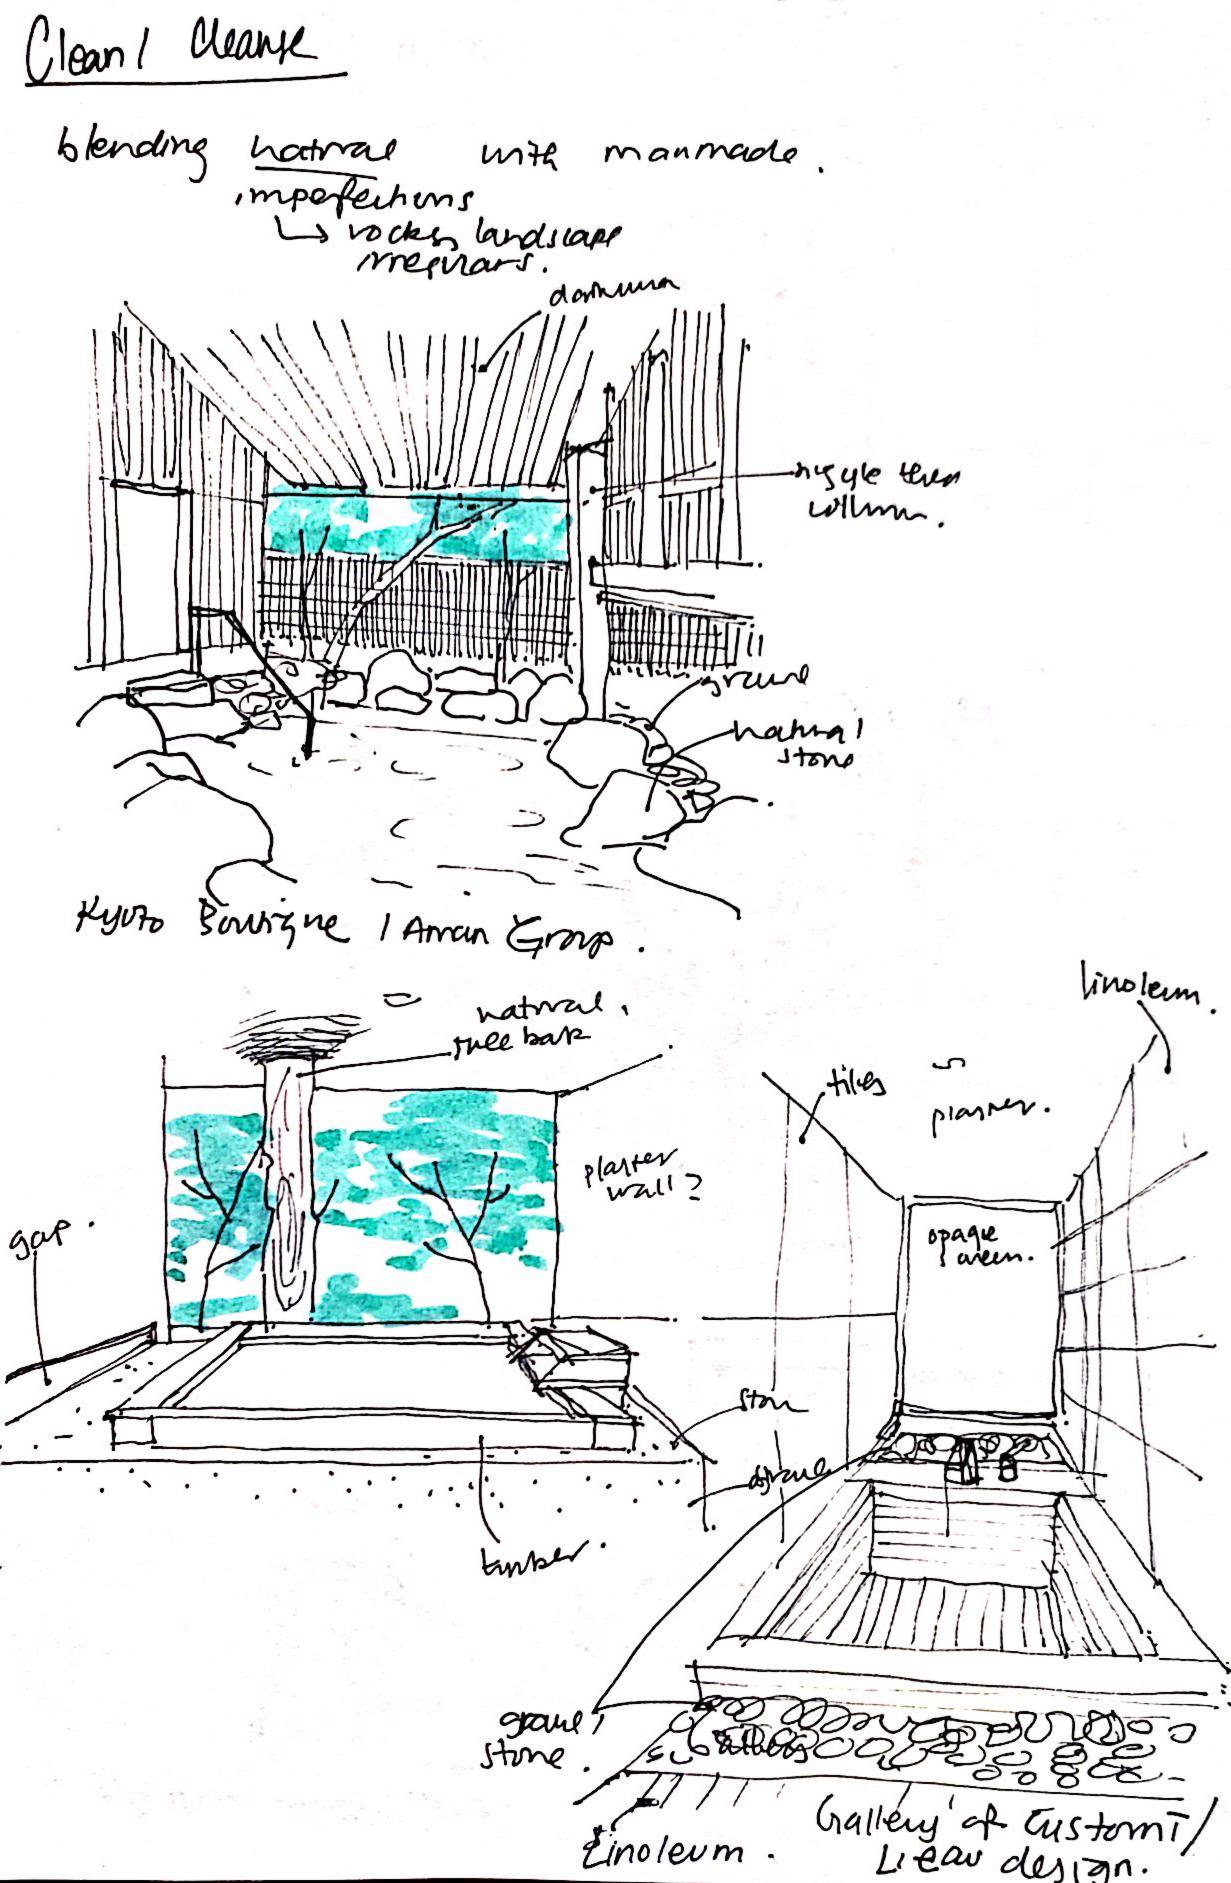 Clean / Cleanse
blending natural with manmade.
imperfections
↳ rocks, landscape
irregulars.
column.
gravel
natural
stone
Kyoto Boutique / Aman Group.
natural
tree bark
linoleum.
tiles
plaster.
plaster
wall?
gap.
opaque
screen.
stone
timber.
gravel /
stone.
Linoleum.
Gallery of Custom /
design.